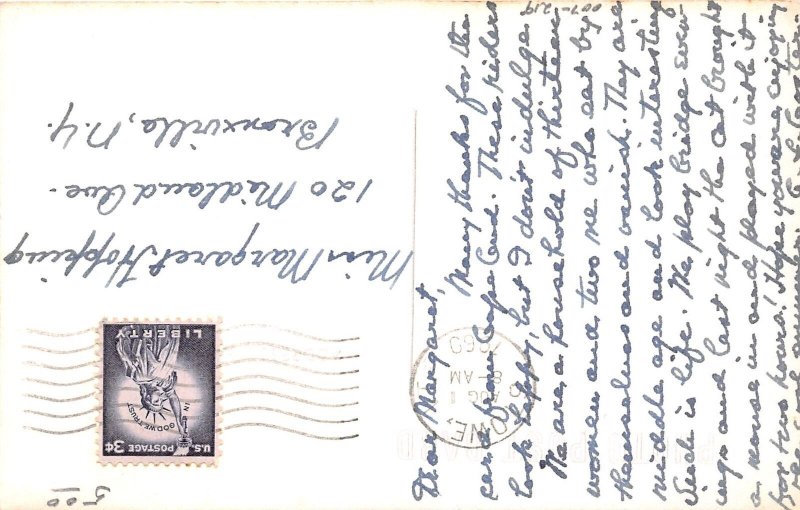 Dear Margaret,
Many thanks for the
card from Cape Cod. These riders
look happy, but I don't indulge.
We are a household of thirteen
women and two men who eat by
themselves and vanish. They are
middle age and look interesting
Such is life. We play bridge even-
ings and last night the cat brought
a mouse in and played with it
for two hours! Hope you are enjoying
Miss Margaret Hopping
120 Midland Ave.
Bronxville, N.Y.
U.S. POSTAGE 3¢
IN GOD WE TRUST
LIBERTY
OWE,
AUG
8 AM
1960
POST CARD
5.00
007-219